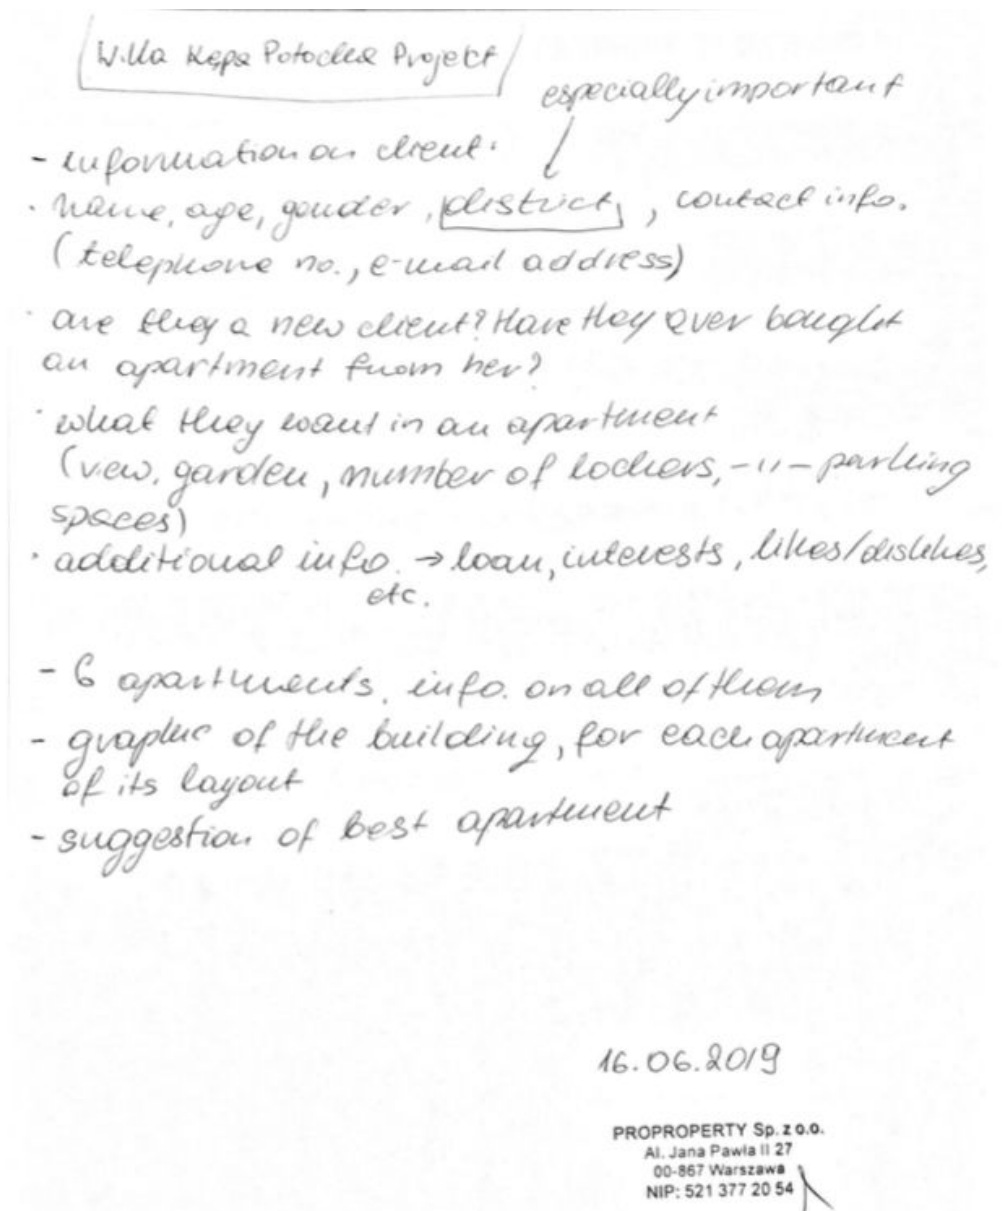 Willa Kępa Potocka Projekt
especially important
- information on client:
· name, age, gender, district, contact info.
(telephone no., e-mail address)
· are they a new client? Have they ever bought
an apartment from her?
· what they want in an apartment
(view, garden, number of lockers, -11- parking
spaces)
· additional info. → loan, interests, likes/dislikes,
etc.
- 6 apartments, info. on all of them
- graphic of the building, for each apartment
of its layout
- suggestion of best apartment
16.06.2019
PROPROPERTY Sp. z o.o.
Al. Jana Pawła II 27
00-867 Warszawa
NIP: 521 377 20 54